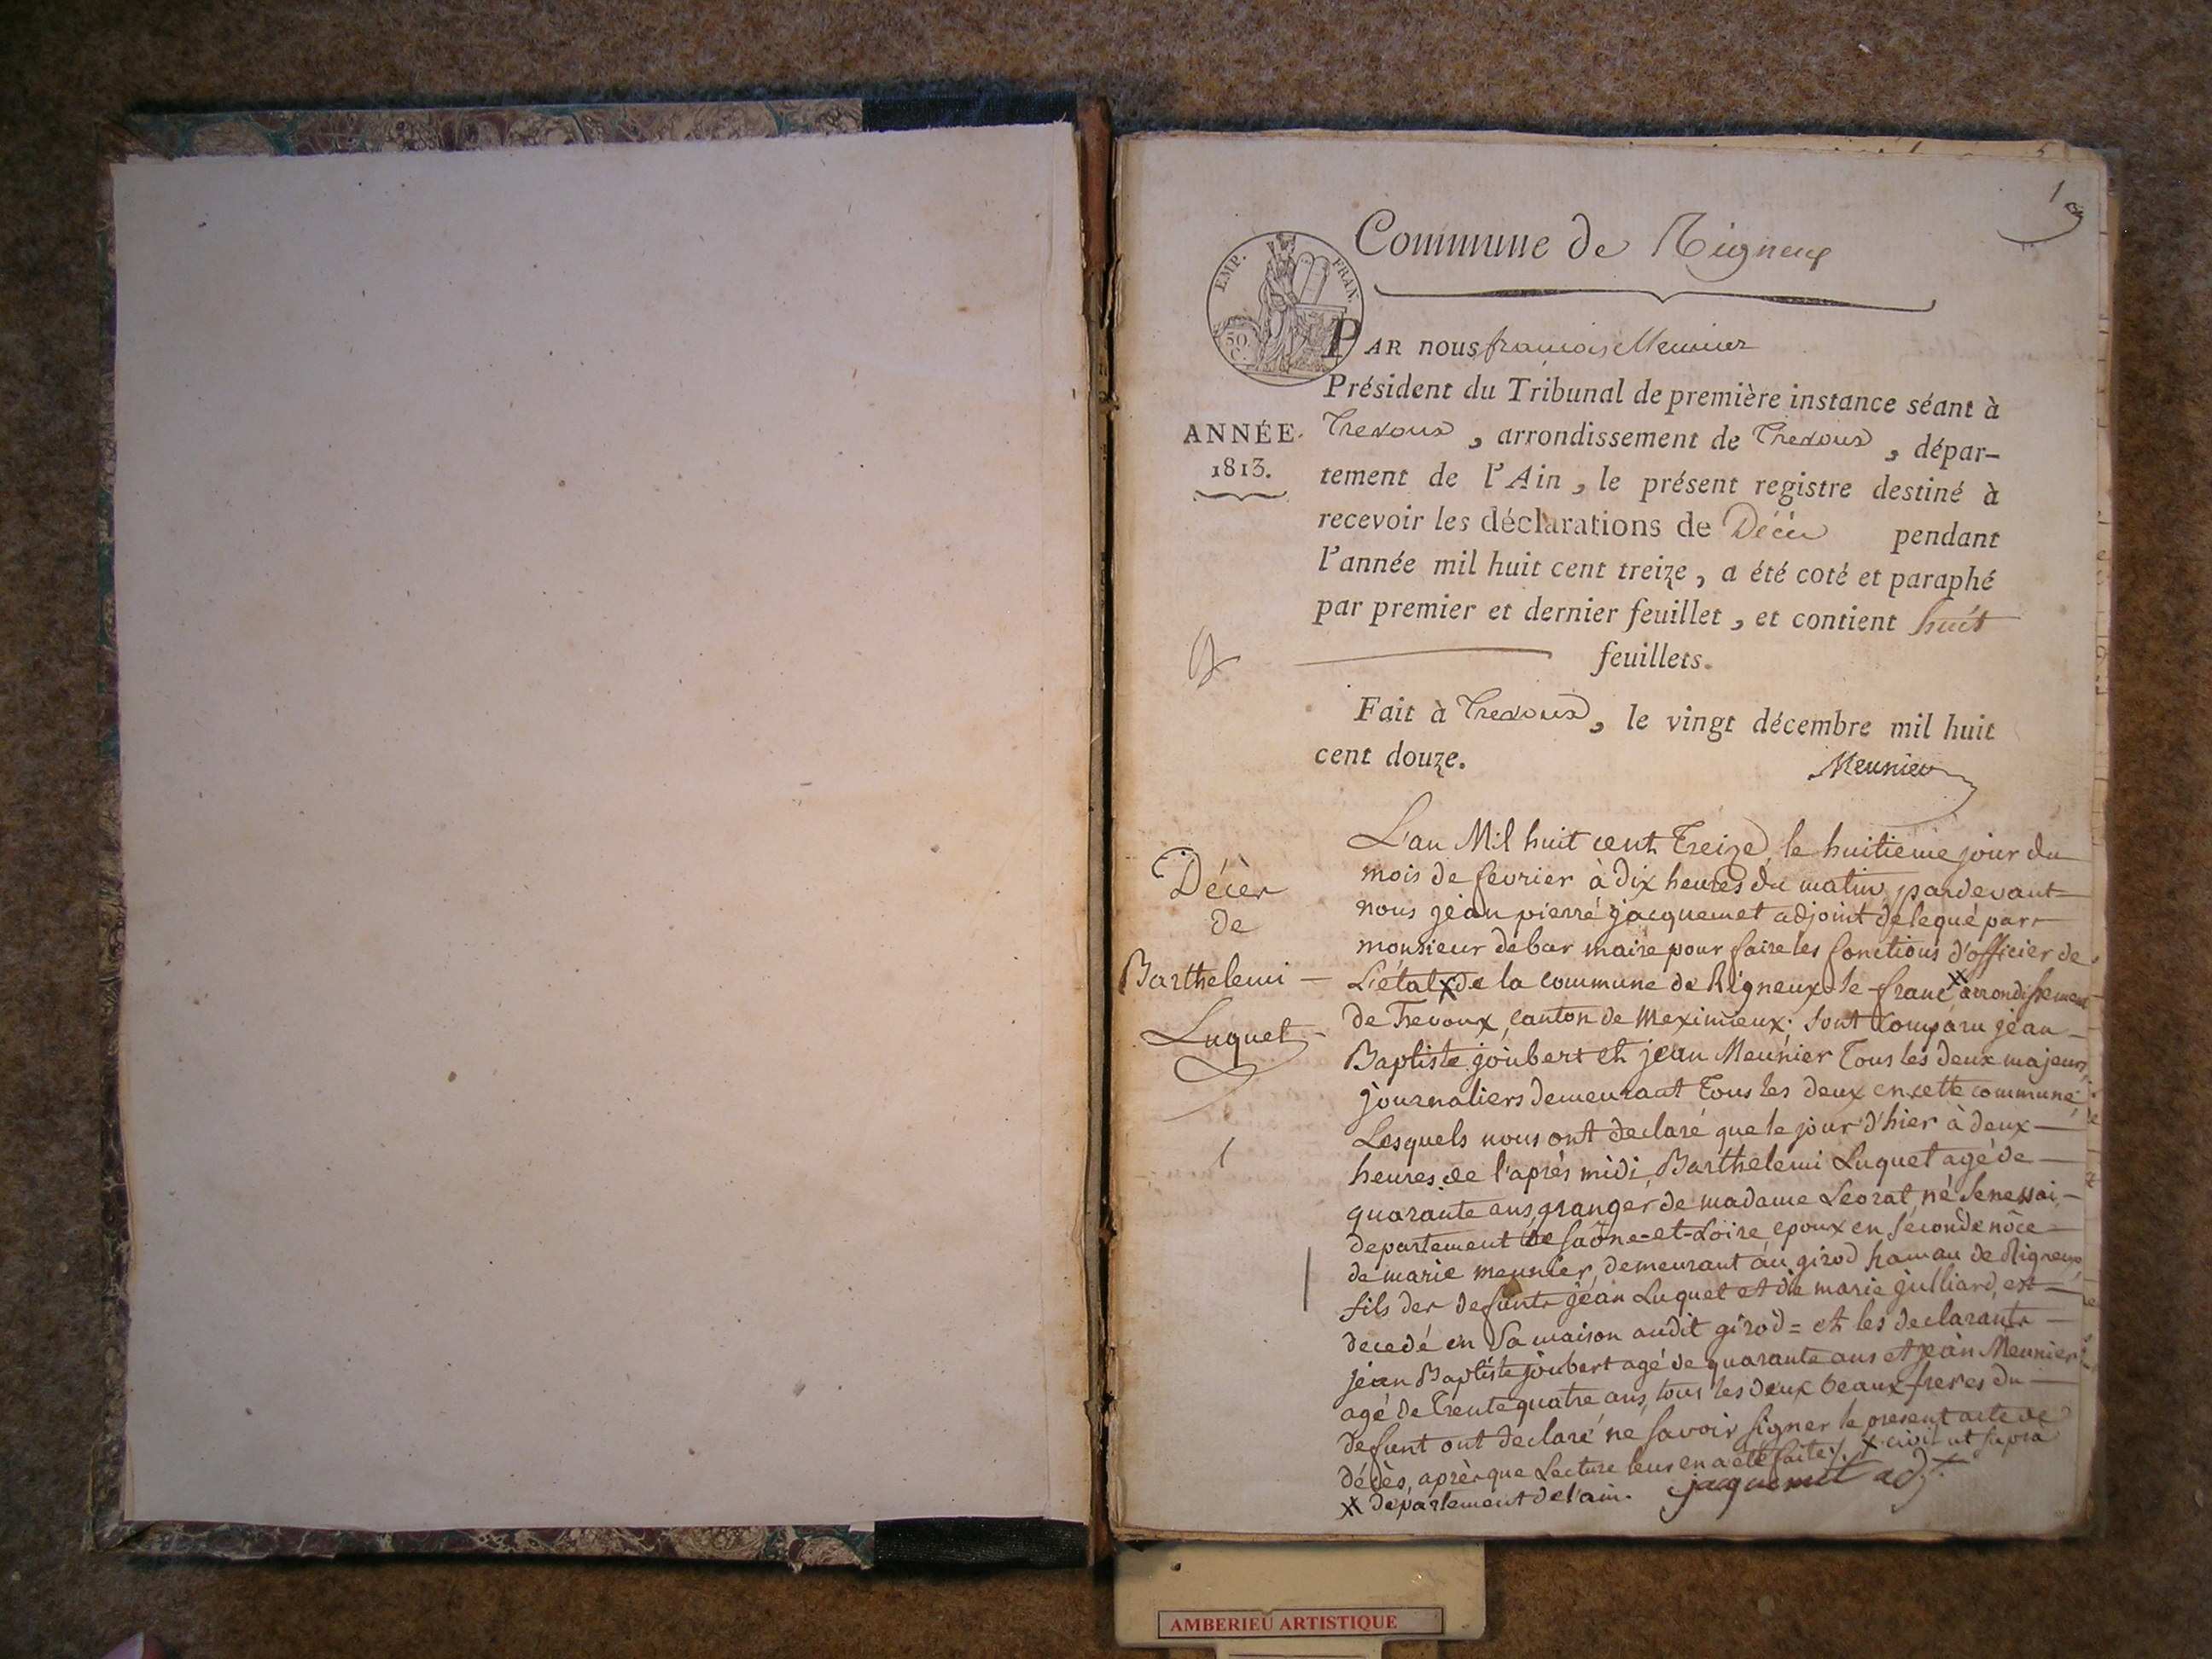 1
Commune de Rigneux
EMP. FRAN.
50 C.
PAR nous françois Meunier
Président du Tribunal de première instance séant à
ANNÉE
1813.
Trevoux, arrondissement de Trevoux, dépar-
tement de l'Ain, le présent registre destiné à
recevoir les déclarations de Décès pendant
l'année mil huit cent treize, a été coté et paraphé
par premier et dernier feuillet, et contient huit
feuillets.
Fait à Trevoux, le vingt décembre mil huit
cent douze.
Meunier
Décès
de
Barthelemi
Luquet
1
L'an Mil huit cent Treize, le huitième jour du
mois de fevrier à dix heures du matin, pardevant
nous jéan pierré jacquemet adjoint délegué par
monsieur debar maire pour faire les fonctions d'officier de
L'état x de la commune de Rigneux-le-franc xx arrondissement
de Trevoux, canton de Meximieux. sont comparu jéan
Baptiste joubert et jean Meunier Tous les deux majeurs,
journaliers demeurant Tous les deux en cette commune,
Lesquels nous ont declaré que le jour d'hier à deux
heures de l'après midi, Barthelemi Luquet agé de
quarante ans granger de madame Leorat, né Senessai
departement de saône-et-Loire, epoux en seconde nôce
de marie meunier, demeurant au girod hamau de Rigneux,
fils des defunts jéan Luquet et de marie julliard, est
decedé en sa maison audit girod = et les declarants
jéan Baptiste joubert agé de quarante ans et jéan Meunier
agé de Trente quatre ans, tous les deux beaux-freres du
defunt ont declaré ne savoir signer le present acte de
décès, après que Lecture leur en a eté faite ./. x civil ut supra
xx departement de l'ain. jacquemet adjt
AMBERIEU ARTISTIQUE